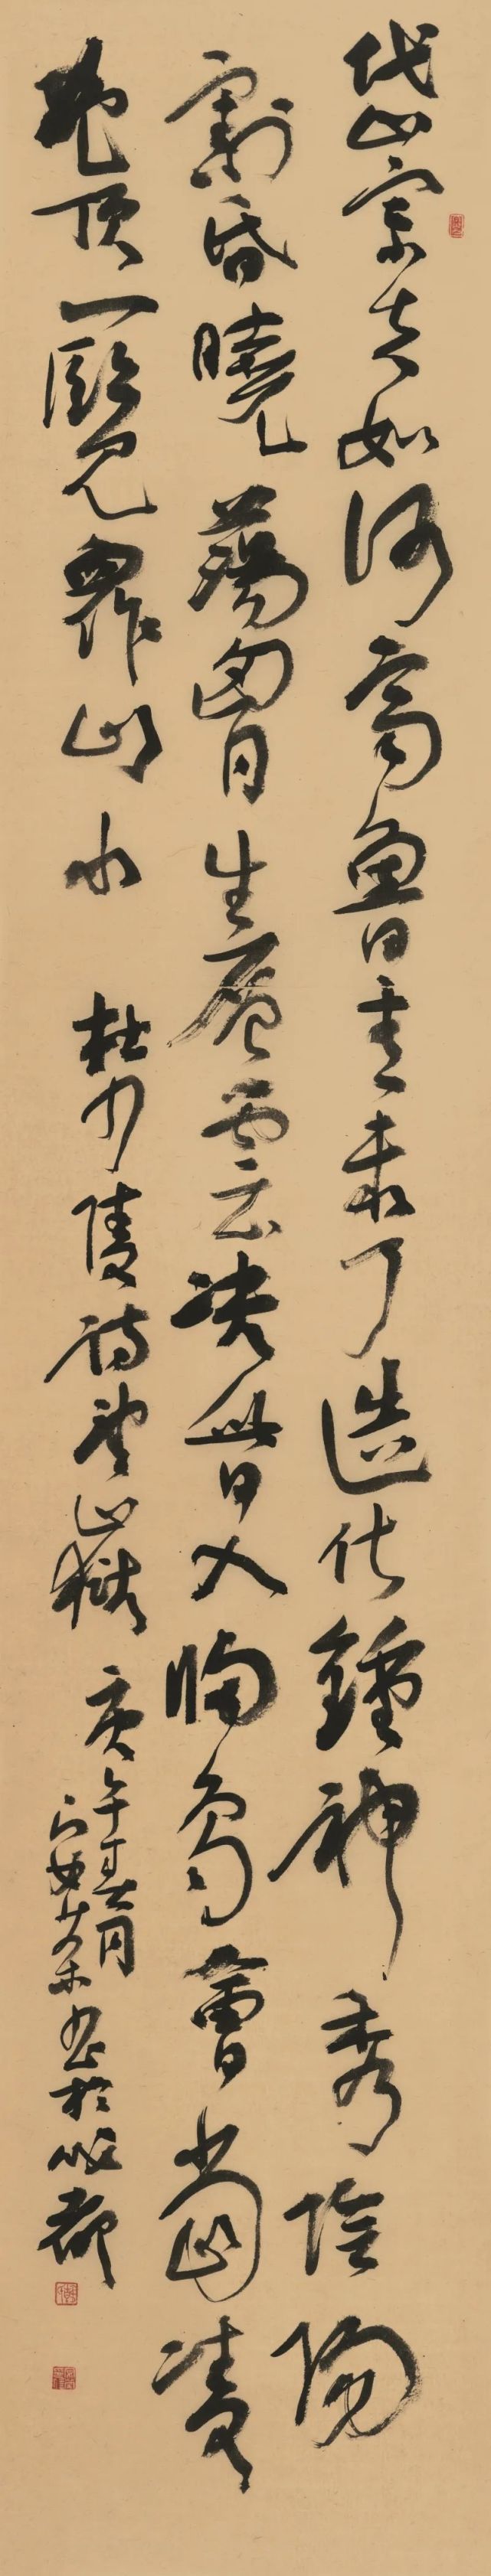 岱宗夫如何齊魯青未了造化鍾神秀陰陽
割昏曉蕩胷生層雲決眥入歸鳥會當凌
絕頂一覽眾山小 杜少陵詩望嶽 庚午春月
書於 都